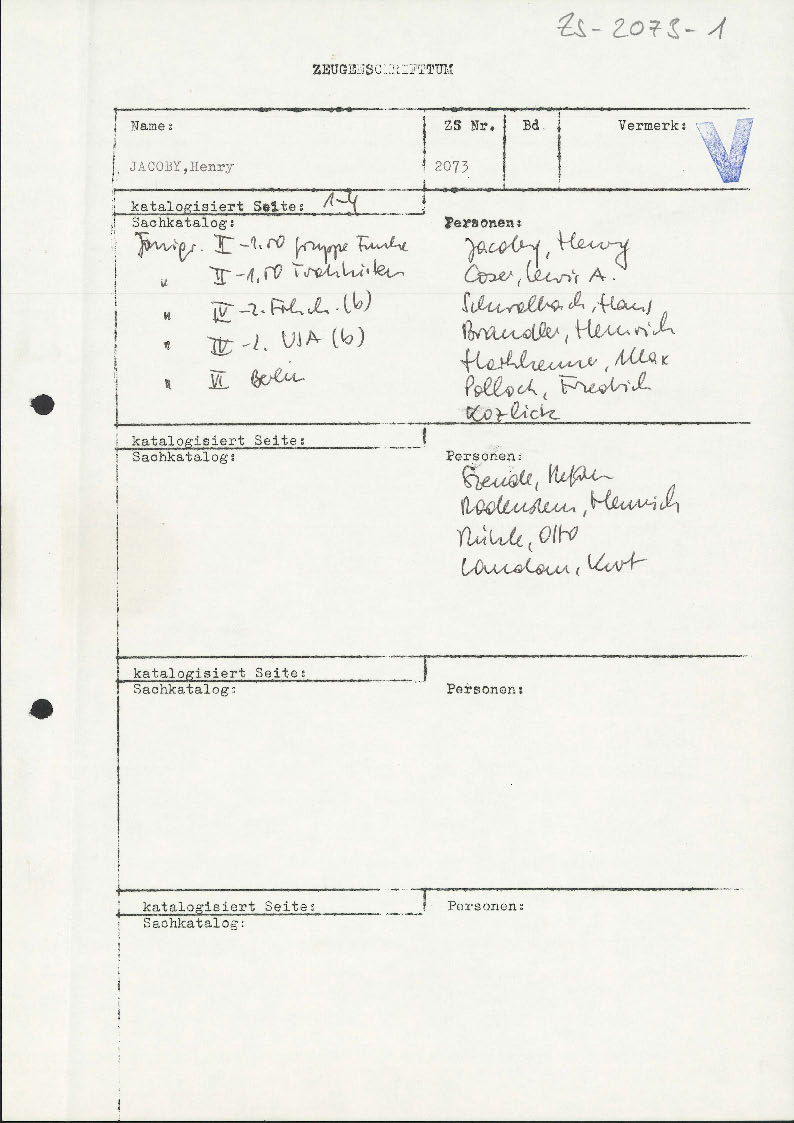 ZS-2073-1
ZEUGENSCHRIFTTUM
Name:
ZS Nr.
Bd
Vermerk:
V
JACOBY,Henry
2073
katalogisiert Seite: 1-4
Sachkatalog:
Personen:
Emigr. II -1.50 Gruppe Funke
" II -1.50 Trotzkisten
" IV -2. (b)
" IV -2. USA (b)
" VI Berlin
Jacoby, Henry
Coser, Lewis A.
Schwalbach, Hans
Brandler, Heinrich
Horkheimer, Max
Pollock, Friedrich
Kozlick
katalogisiert Seite:
Sachkatalog:
Personen:
Stefan
Heinrich
Rühle, Otto
Landau, Kurt
katalogisiert Seite:
Sachkatalog:
Personen:
katalogisiert Seite:
Sachkatalog:
Personen: